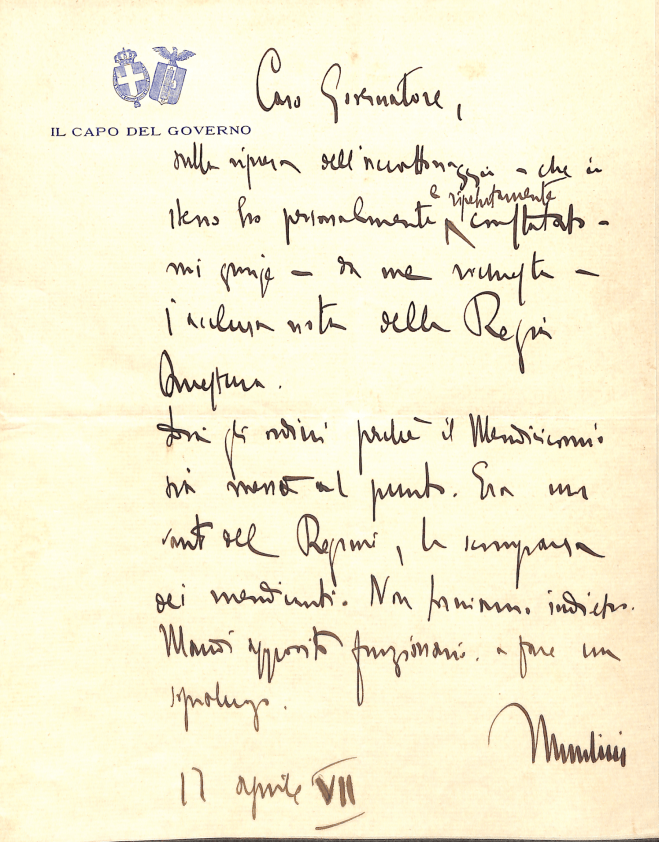 IL CAPO DEL GOVERNO
Caro Governatore,
sulla ripresa dell'accattonaggio - che io
stesso ho personalmente e ripetutamente constatato -
mi giunge - da me richiesta -
l'acclusa nota della Regia
Questura.
Dia gli ordini perché il Mendicicomio
sia messo al punto. Era un
vanto del Regime, la scomparsa
dei mendicanti. Non torniamo indietro.
Mandi apposito funzionario a fare un
sopraluogo.
Mussolini
17 aprile VII